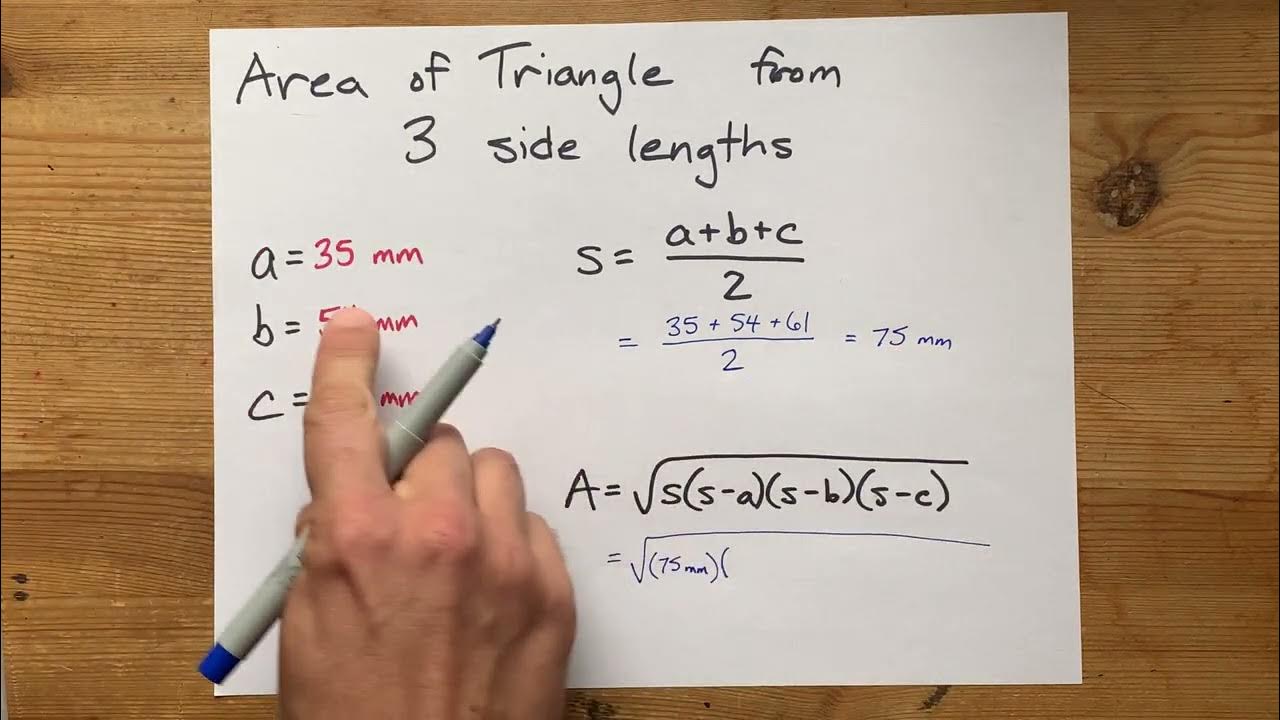 Area of Triangle from
3 side lengths
a = 35 mm
b = mm
c = mm
s = a+b+c / 2
= 35 + 54 + 61 / 2 = 75 mm
A = √s(s-a)(s-b)(s-c)
= √(75 mm)(